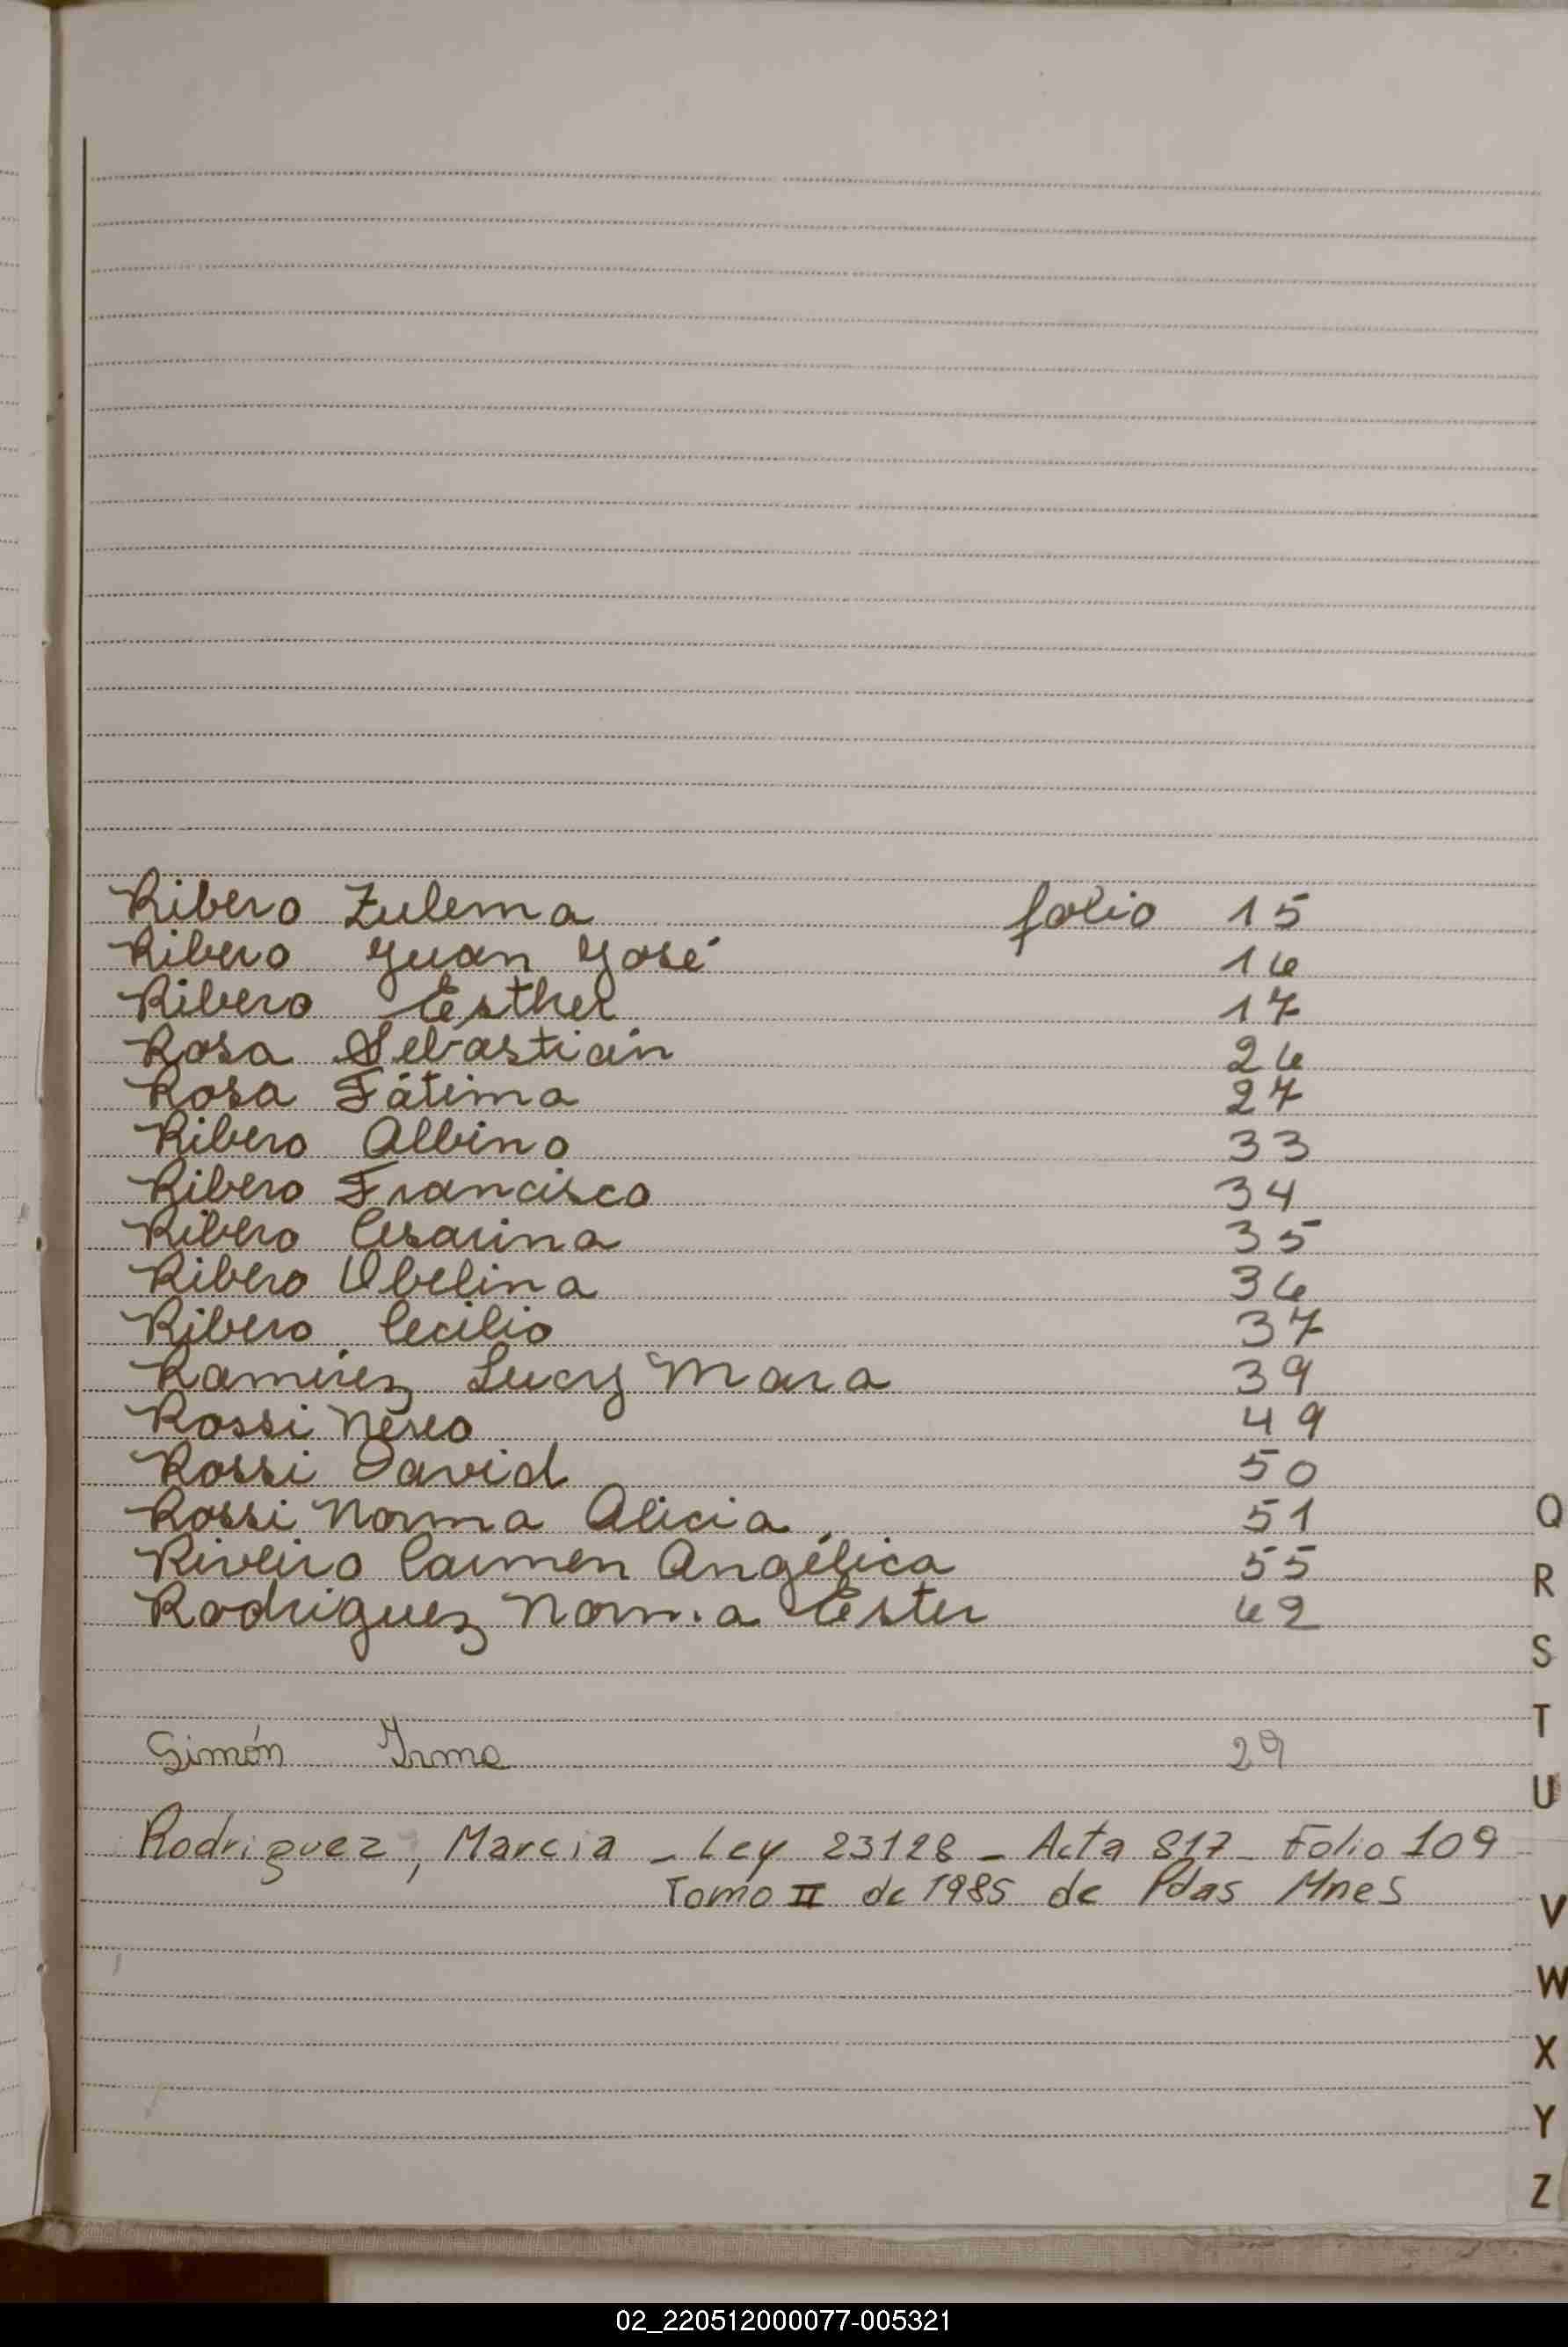 Ribero Zulema folio 15
Ribero Juan José 16
Ribero Esther 17
Rosa Sebastián 26
Rosa Fátima 27
Ribero Albino 33
Ribero Francisco 34
Ribero Cesarina 35
Ribero Ubelina 36
Ribero Cecilio 37
Ramirez Lucy Mara 39
Rossi Nereo 49
Rossi David 50
Rossi Norma Alicia 51
Riveiro Carmen Angélica 55
Rodriguez Norma Ester 62
Simón Irma 29
Rodriguez, Marcia - Ley 23128 - Acta 817 - Folio 109
Tomo II de 1985 de Pdas Mnes
Q
R
S
T
U
V
W
X
Y
Z
02_220512000077-005321